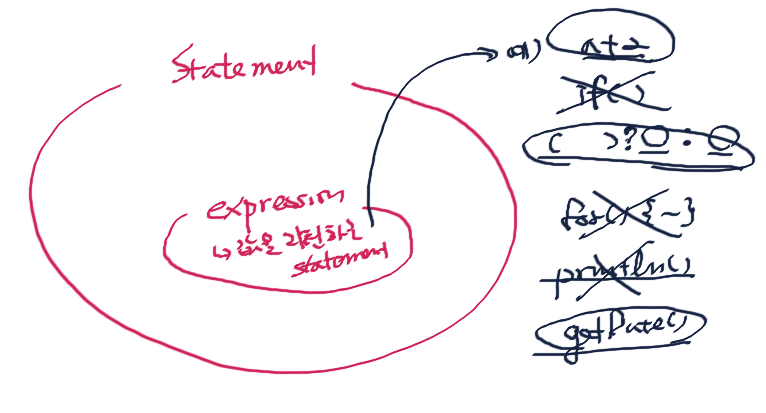 Statement
expression
↳ 값을 리턴하는
statement
예) a+2
if( )
( )? ○ : ○
for( ) {~}
println()
getDate()